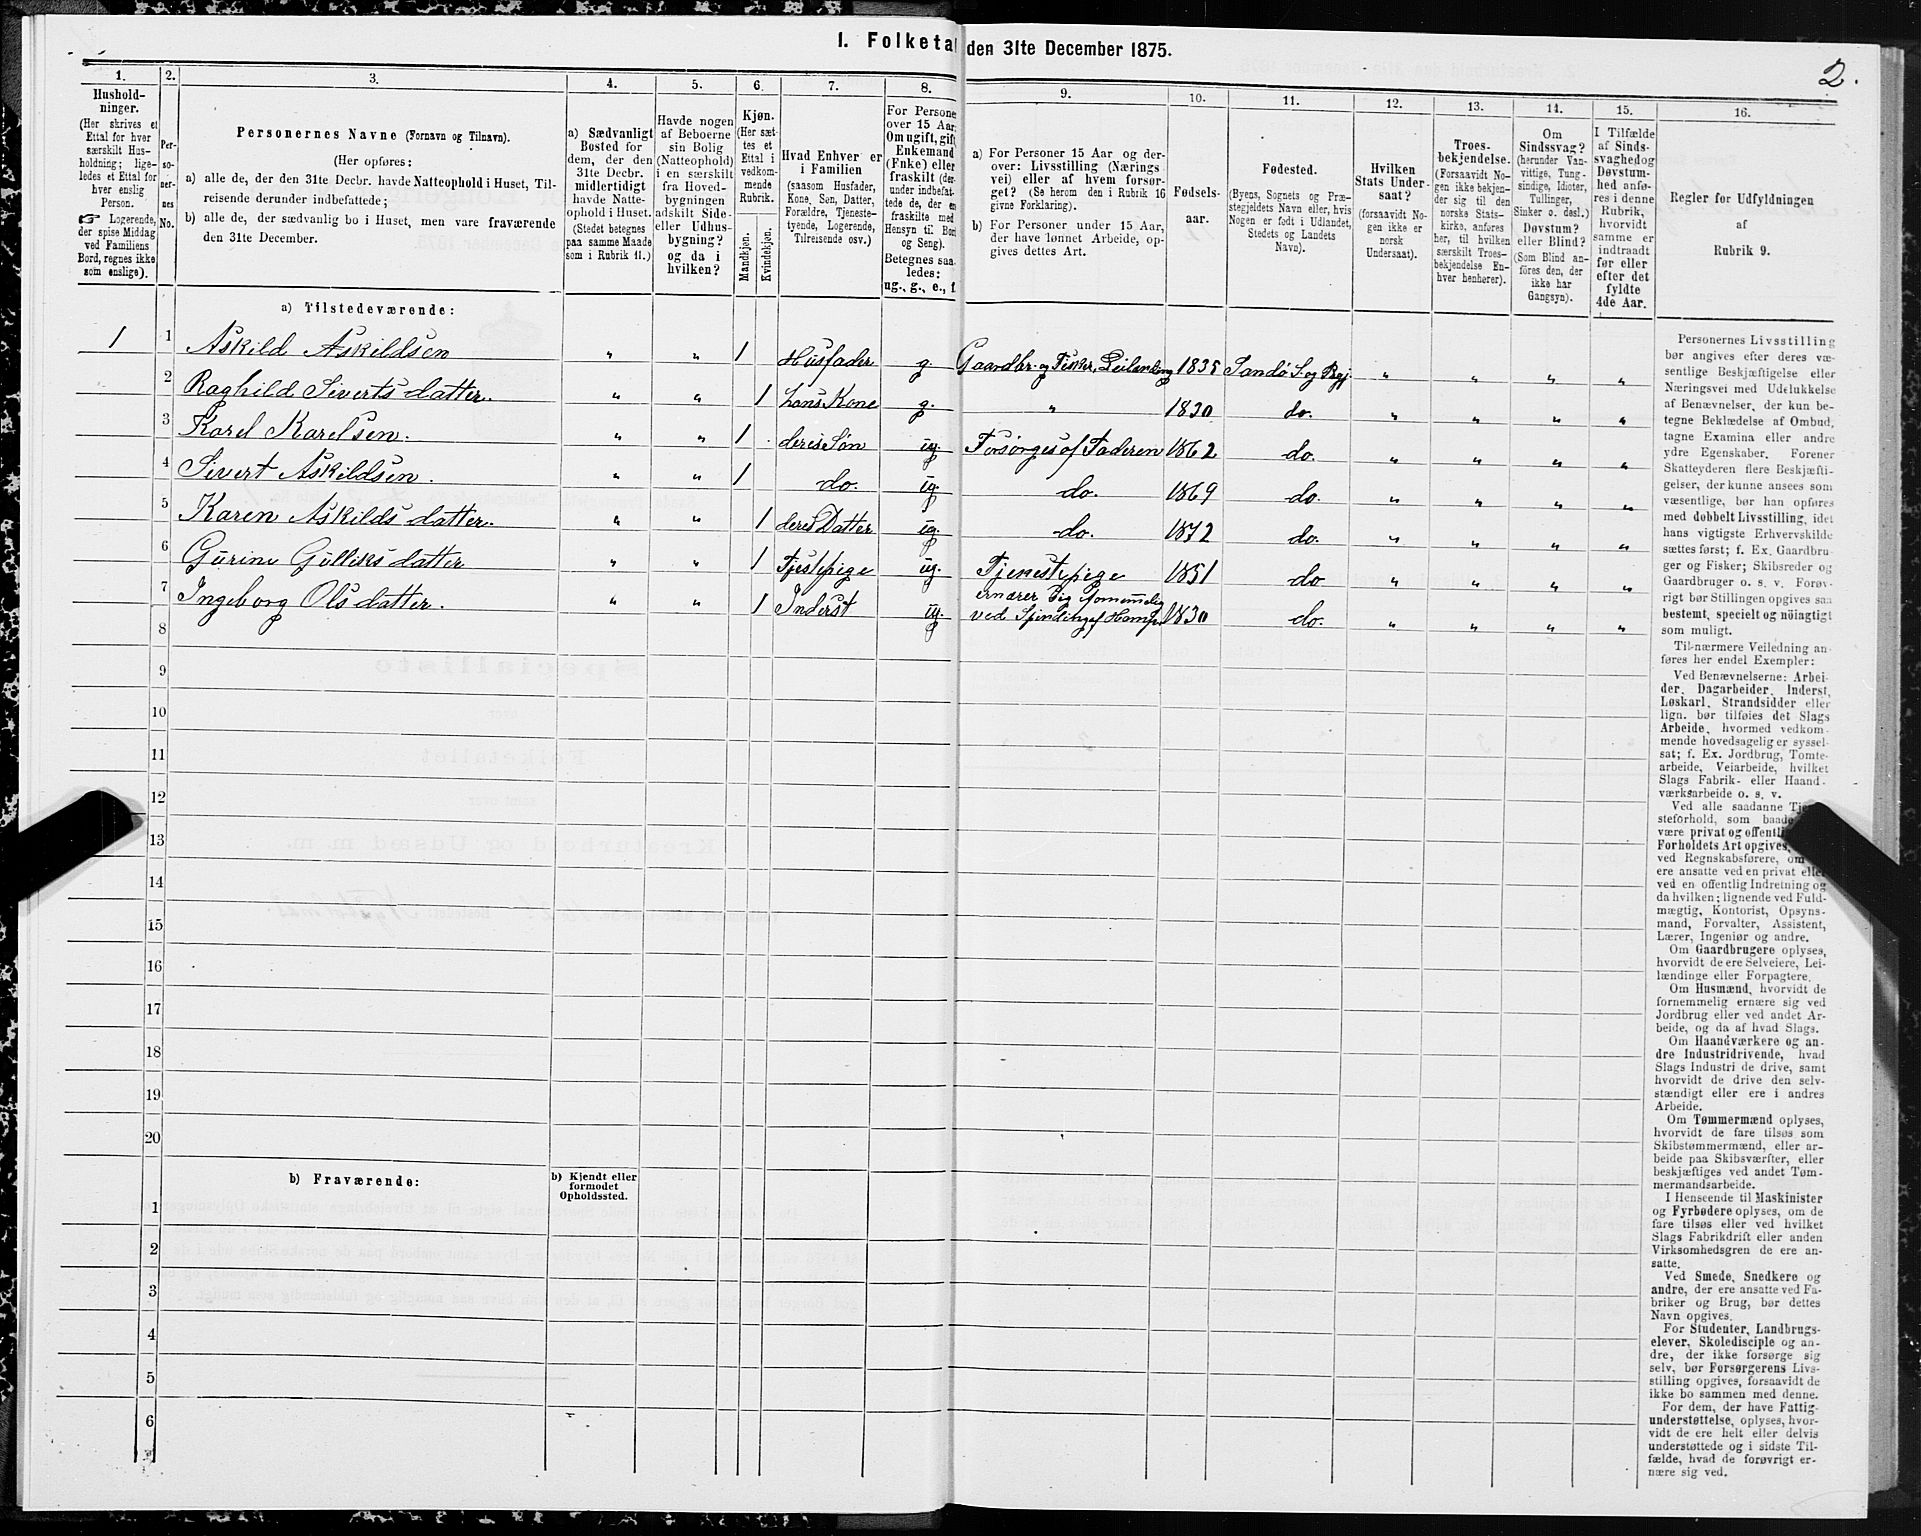 I. Folketal den 31te December 1875.
2.
1.
Hushold-
ninger.
(Her skrives et
Ettal for hver
særskilt Hus-
holdning; lige-
ledes et Ettal for
hver enslig
Person.
☞ Logerende,
der spise Middag
ved Familiens
Bord, regnes ikke
som enslige).
2.
Per-
so-
ner-
nes
No.
3.
Personernes Navne (Fornavn og Tilnavn).
(Her opføres:
a) alle de, der den 31te Decbr. havde Natteophold i Huset, Til-
reisende derunder indbefattede;
b) alle de, der sædvanlig bo i Huset, men vare fraværende
den 31te December.
4.
a) Sædvanligt
Bosted for
dem, der den
31te Decbr.
midlertidigt
havde Natte-
ophold i Huset.
(Stedet betegnes
paa samme Maade
som i Rubrik 11.)
5.
Havde nogen
af Beboerne
sin Bolig
(Natteophold)
i en særskilt
fra Hoved-
bygningen
adskilt Side-
eller Udhus-
bygning?
og da i
hvilken?
6.
Kjøn.
(Her sæt-
tes et
Ettal i
vedkom-
mende
Rubrik.
Mandkjøn.
Kvindekjøn.
7.
Hvad Enhver er
i Familien
(saasom Husfader,
Kone, Søn, Datter,
Forældre, Tjeneste-
tyende, Logerende,
Tilreisende osv.)
8.
For Persone
over 15 Aar
Om ugift, gift,
Enkemand
(Enke) eller
fraskilt (der-
under indbefat-
tede de, der e
fraskilte med
Hensyn til Bord
og Seng).
Betegnes saa
ledes:
ug., g., e., f.
9.
a) For Personer 15 Aar og der-
over: Livsstilling (Nærings-
vei) eller af hvem forsør-
get? (Se herom den i Rubrik 16
givne Forklaring).
b) For Personer under 15 Aar,
der have lønnet Arbeide, op-
gives dettes Art.
10.
Fødsels-
aar.
11.
Fødested.
(Byens, Sognets og Præ-
stegjeldets Navn eller, hvis
Nogen er født i Udlandet,
Stedets og Landets
Navn).
12.
Hvilken
Stats Under-
saat?
(forsaavidt No-
gen ikke er
norsk
Undersaat).
13.
Troes-
bekjendelse.
(Forsaavidt No-
gen ikke bekjen-
der sig til den
norske Stats-
kirke, anføres
her, til hvilken
særskilt Troes-
bekjendelse En-
hver henhører).
14.
Om
Sindssvag?
(herunder Van-
vittige, Tung-
sindige, Idioter,
Tullinger,
Sinker o. desl.)
Døvstum?
eller Blind?
(Som Blind an-
føres den, der
ikke har
Gangsyn).
15.
I Tilfælde
af Sinds-
svaghed og
Døvstum-
hed anfø-
res i denne
Rubrik,
hvorvidt
samme er
indtraadt
før eller
efter det
fyldte
4de Aar.
16.
Regler for Udfyldningen
af
Rubrik 9.
a) Tilstedeværende:
1 1 Askild Askildsen " " 1 Husfader g Gaardbr. og Fisker, Leilending 1835 Sandø S. og Pgj " " " "
2 Raghild Siverts datter. " " 1 hans Kone g. " 1830 do. " " " "
3 Karel Karelsen. " " 1 deres Søn ug. Forsørges af Faderen 1862 do. " " " "
4 Sivert Askildsen. " " 1 do. ug. do. 1869 do. " " " "
5 Karen Askilds datter. " " 1 deres Datter ug. do. 1872 do. " " " "
6 Gurine Gulliks datter " " 1 Tjestepige ug. Tjenestepige 1851 do " " " "
ernærer sig fornemelig
7 Ingeborg Ols datter. " " 1 Inderst ug. ved Spinding af Hamp. 1830 do. " " " "
8
9
10
11
12
13
14
15
16
17
18
19
20
b) Fraværende:
b) Kjendt eller
formodet
Opholdssted.
1
2
3
4
5
6
Personernes Livsstilling
bør angives efter deres væ-
sentlige Beskjæftigelse eller
Næringsvei med Udelukkelse
af Benævnelser, der kun be-
tegne Beklædelse af Ombud,
tagne Examina eller andre
ydre Egenskaber. Forener
Skatteyderen flere Beskjæfti-
gelser, der kunne ansees som
væsentlige, bør han opføres
med dobbelt Livsstilling, idet
hans vigtigste Erhvervskilde
sættes først; f. Ex. Gaardbru-
ger og Fisker; Skibsreder og
Gaardbruger o. s. v. Forøv-
rigt bør Stillingen opgives saa
bestemt, specielt og nöiagtigt
som muligt.
Til nærmere Veiledning an-
føres her endel Exempler:
Ved Benævnelserne: Arbei-
der, Dagarbeider, Inderst,
Løskarl, Strandsidder eller
lign. bør tilføies det Slags
Arbeide, hvormed vedkom-
mende hovedsagelig er syssel-
sat; f. Ex. Jordbrug, Tomte-
arbeide, Veiarbeide, hvilket
Slags Fabrik- eller Haand-
værksarbeide o. s. v.
Ved alle saadanne Tje
steforhold, som baade
være privat og offentlig
Forholdets Art opgives,
ved Regnskabsførere, om
ere ansatte ved en privat eller
ved en offentlig Indretning og
da hvilken; lignende ved Fuld-
mægtig, Kontorist, Opsyns-
mand, Forvalter, Assistent,
Lærer, Ingeniør og andre.
Om Gaardbrugere oplyses,
hvorvidt de ere Selveiere, Lei-
lændinge eller Forpagtere.
Om Husmænd, hvorvidt de
fornemmelig ernære sig ved
Jordbrug eller ved andet Ar-
beide, og da af hvad Slags.
Om Haandværkere og an-
dre Industridrivende, hvad
Slags Industri de drive, samt
hvorvidt de drive den selv-
stændigt eller ere i andres
Arbeide.
Om Tømmermænd oplyses,
hvorvidt de fare tilsøs som
Skibstømmermænd, eller ar-
beide paa Skibsværfter, eller
beskjæftiges ved andet Tøm-
mermandsarbeide.
I Henseende til Maskinister
og Fyrbødere oplyses, om de
fare tilsøs eller ved hvilket
Slags Fabrikdrift eller anden
Virksomhedsgren de ere an-
satte.
Ved Smede, Snedkere og
andre, der ere ansatte ved Fa-
briker og Brug, bør dettes
Navn opgives.
For Studenter, Landbrugs-
elever, Skoledisciple og an-
dre, der ikke forsørge sig
selv, bør Forsørgerens Livs-
stilling opgives, forsaavidt de
ikke bo sammen med denne.
For dem, der have Fattig-
understøttelse, oplyses, hvor-
vidt de ere helt eller delvis
understøttede og i sidste Til-
fælde, hvad de forøvrigt er-
nære sig ved.